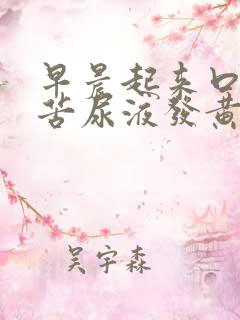 早晨起来口
苦尿液發黄
吴宇森